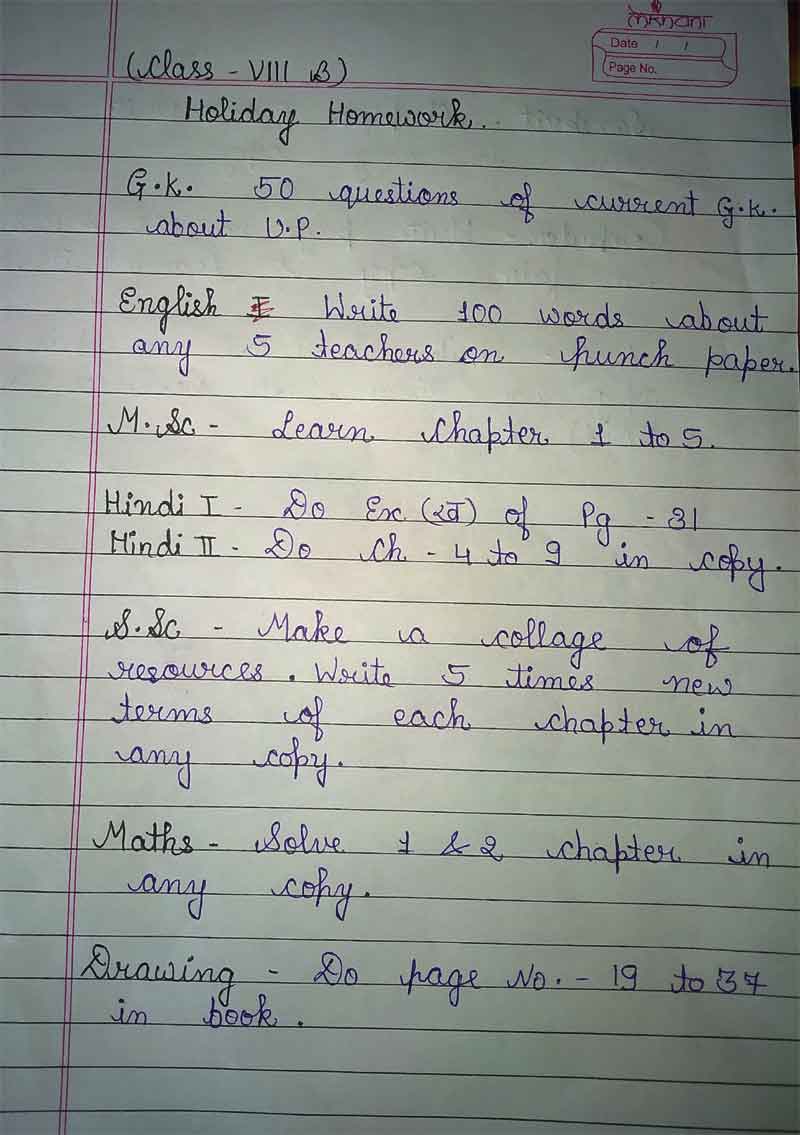 Date / /
Page No.
(Class - VIII B)
Holiday Homework.
G.K. 50 questions of current G.K.
about U.P.
English I Write 100 words about
any 5 teachers on punch paper.
M.Sc - Learn Chapter 1 to 5.
Hindi I - Do Ex (ख) of Pg - 31
Hindi II - Do Ch - 4 to 9 in copy.
S.Sc - Make a collage of
resources. Write 5 times new
terms of each chapter in
any copy.
Maths - Solve 1 & 2 chapter in
any copy.
Drawing - Do page No. - 19 to 37
in book.